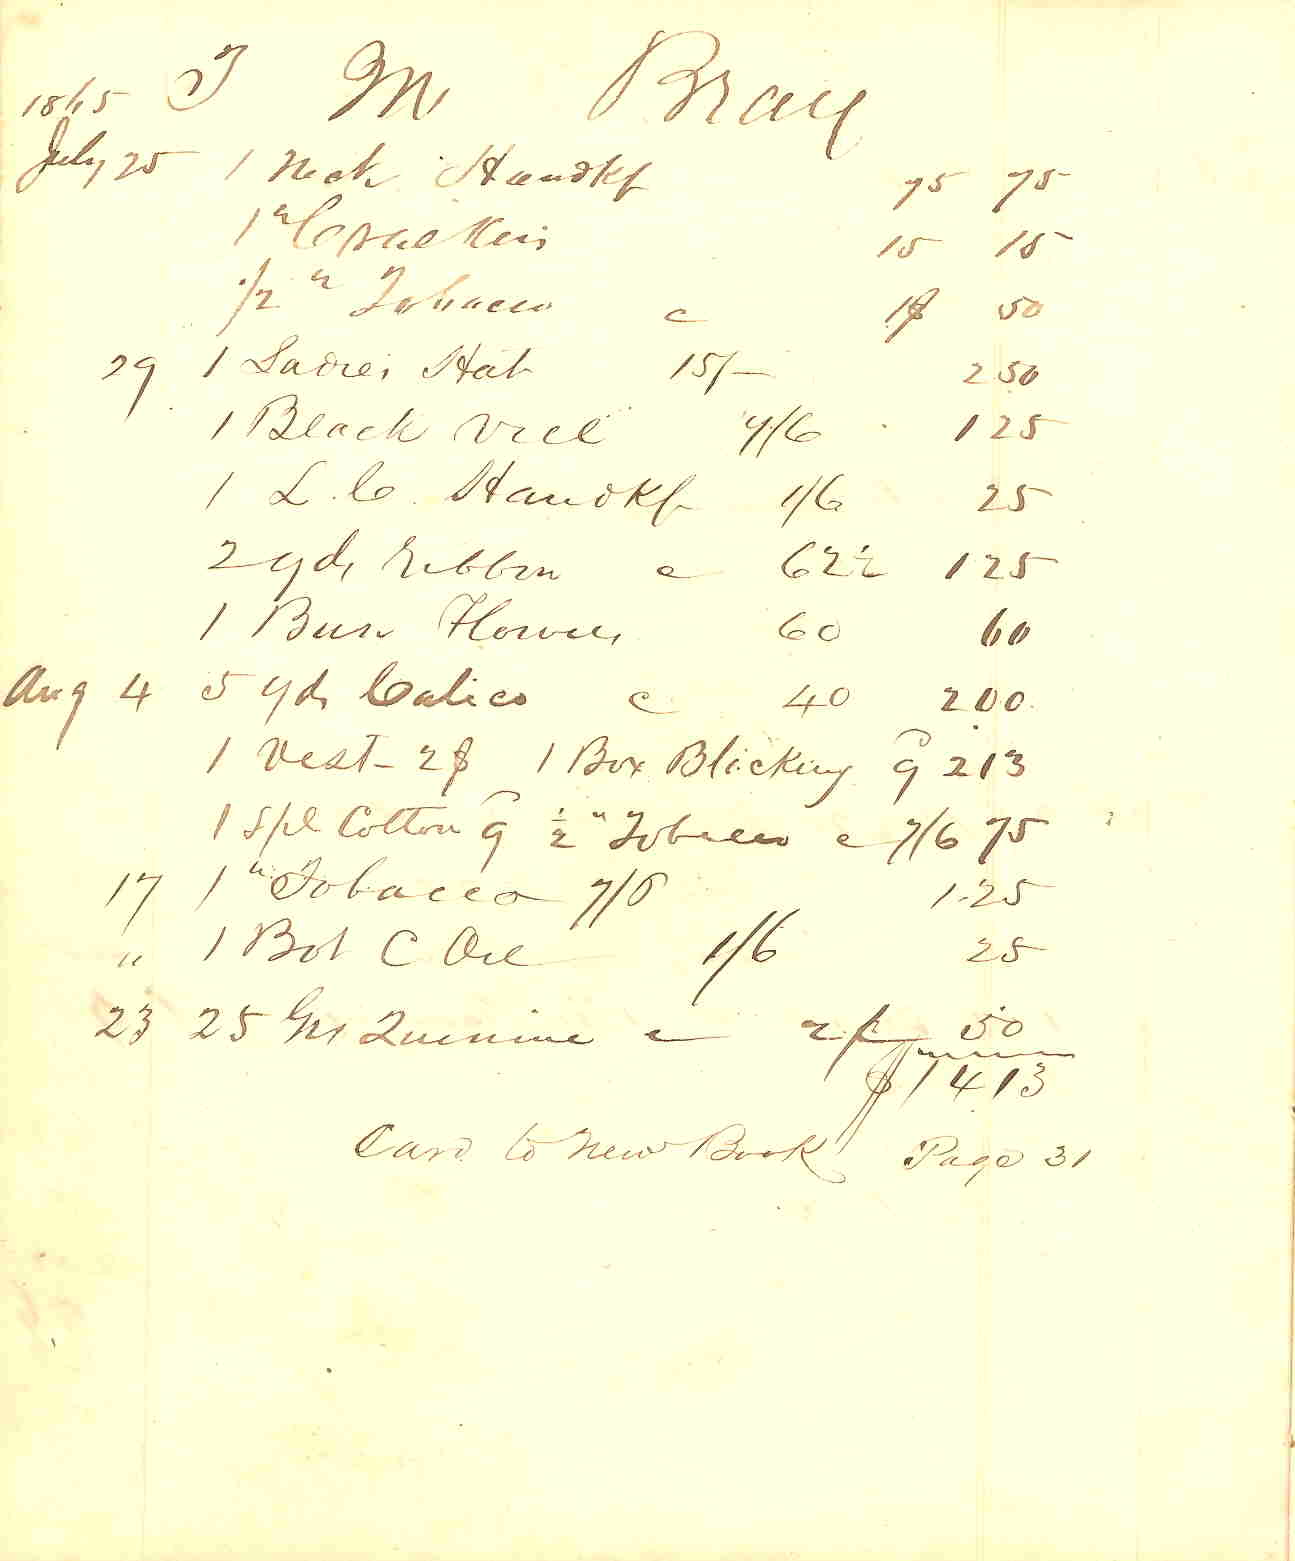 1865 T M Bray
July 25 1 Neck Handkf 75 75
1 " Crackers 15 15
1/2 " Tobacco c 1$ 50
29 1 Ladies Hat 15/- 2 50
1 Black Veil 7/6 1 25
1 L. C. Handkf 1/6 25
2 yds Ribbon c 62½ 1 25
1 Bun Flowers 60 60
Aug 4 5 yds Calico c 40 2 00
1 Vest 2$ 1 Box Blicking 9 2 13
1 Spl Cotton 9 ½ " Tobacco c 7/6 75
17 1 " Tobacco 7/6 1.25
" 1 Bot C Oil 1/6 25
23 25 Grs Quinine c 2¢ 50
$14 13
Card to New Book Page 31